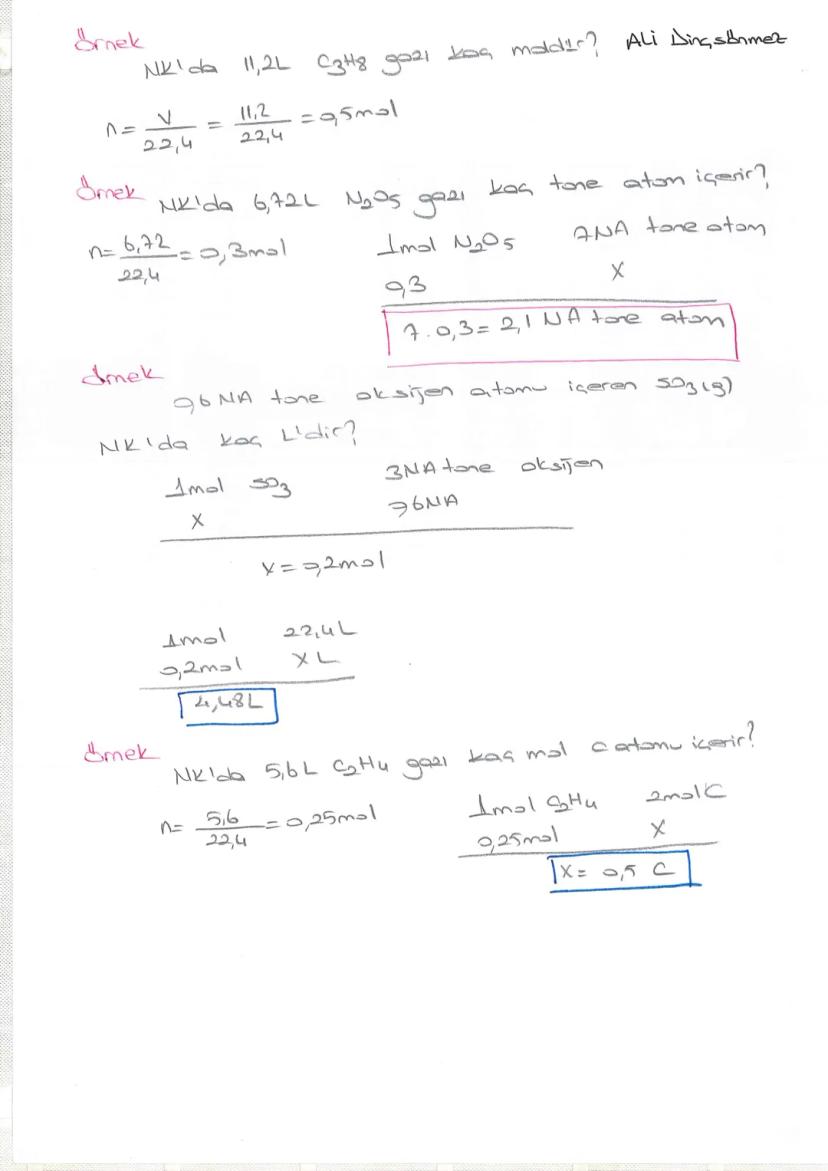 Örnek
NK'da 11,2L C₃H₈ gazı kaç moldür? Ali Dinçsönmez
n = V/22,4 = 11,2/22,4 = 0,5mol
Örnek NK'da 6,72L N₂O₅ gazı kaç tane atom içerir?
n = 6,72/22,4 = 0,3mol
1mol N₂O₅ 7NA tane atom
0,3 X
7.0,3 = 2,1 NA tane atom
Örnek
0,6 NA tane oksijen atomu içeren SO₃(g)
NK'da kaç L'dir?
1mol SO₃ 3NA tane oksijen
X 0,6NA
X = 0,2mol
1mol 22,4L
0,2mol X L
4,48L
Örnek
NK'da 5,6L C₂H₄ gazı kaç mol C atomu içerir?
n = 5,6/22,4 = 0,25mol
1mol C₂H₄ 2molC
0,25mol X
X = 0,5 C